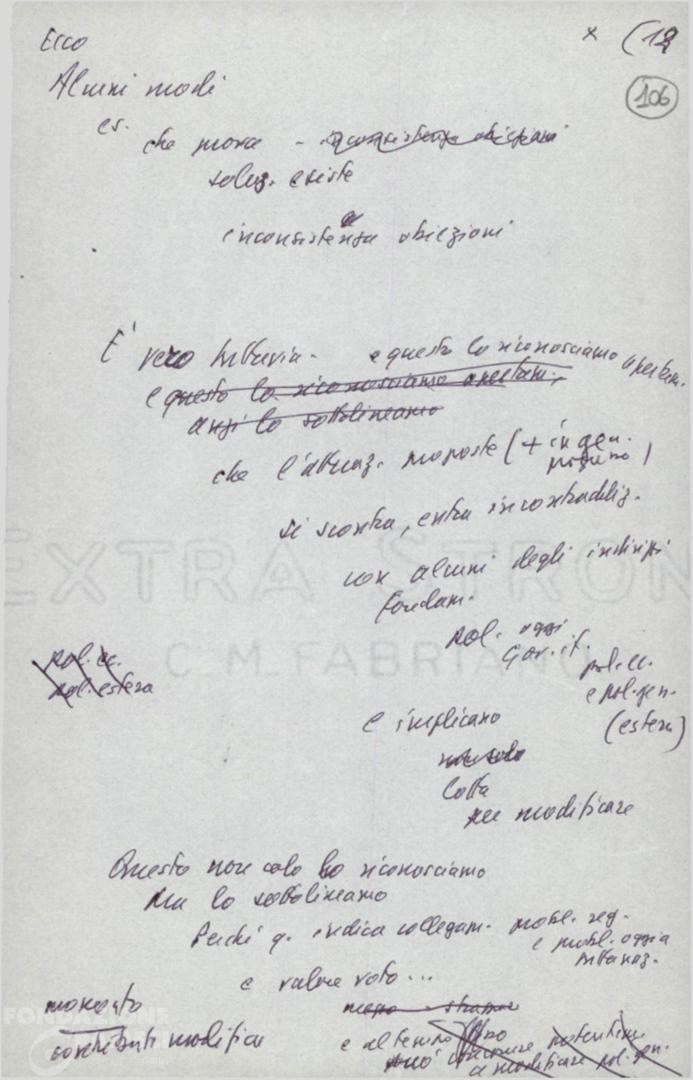 Ecco
x (12
106
Alcuni modi
es. che prova - inconsistenza obiezioni
soluz. esiste
inconsistenza obiezioni
È vero tuttavia - e questo lo riconosciamo apertam.
e questo lo riconosciamo apertam.,
anzi lo sottolineamo
che l'attuaz. proposte (+ in gen.
si scontra, entra in contraddiz.
con alcuni degli indirizzi
fondam.
pol. oggi
gov. it.
pol. ec.
pol. estera
pol. ec.
e pol. gen.
(estera)
e implicano
non solo
lotta
per modificare
Questo non solo lo riconosciamo
ma lo sottolineamo
Perché q. indica collegam. probl. reg.
e probl. oggi a
tutta naz.
e valore voto...
momento
contributi modifica
e al tempo
può concorrere
a modificare pol. gen.
EXTRA STRON
C M FABRIANO
FONDAZIONE